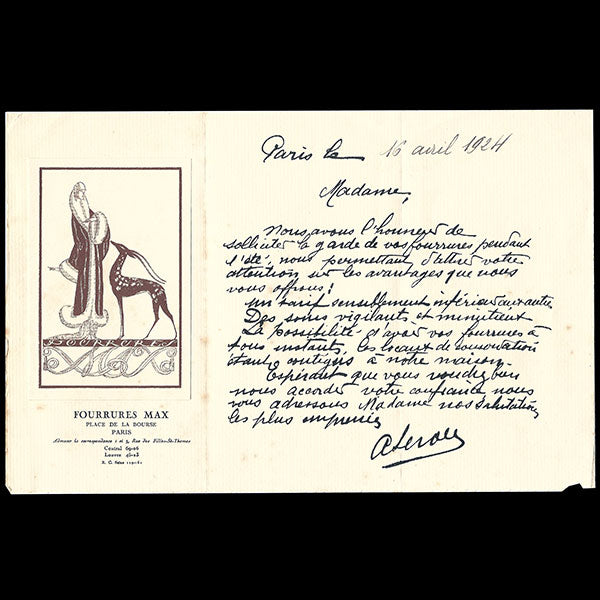 FOURRURES
FOURRURES MAX
PLACE DE LA BOURSE
PARIS
Adresser la correspondance 1 et 3, Rue des Filles-St-Thomas
Central 69-26
Louvre 46-23
R. C. Seine
Paris le 16 avril 1924
Madame,
Nous avons l'honneur de
solliciter la garde de vos fourrures pendant
l'été, nous permettant d'attirer votre
attention sur les avantages que nous
vous offrons:
Un tarif sensiblement inférieur aux autres
Des soins vigilants et minutieux
La possibilité d'avoir vos fourrures à
tous instants, les locaux de conservation
étant contigus à notre maison.
Espérant que vous voudrez bien
nous accorder votre confiance nous
vous adressons Madame nos salutations
les plus empressées
A Leroy